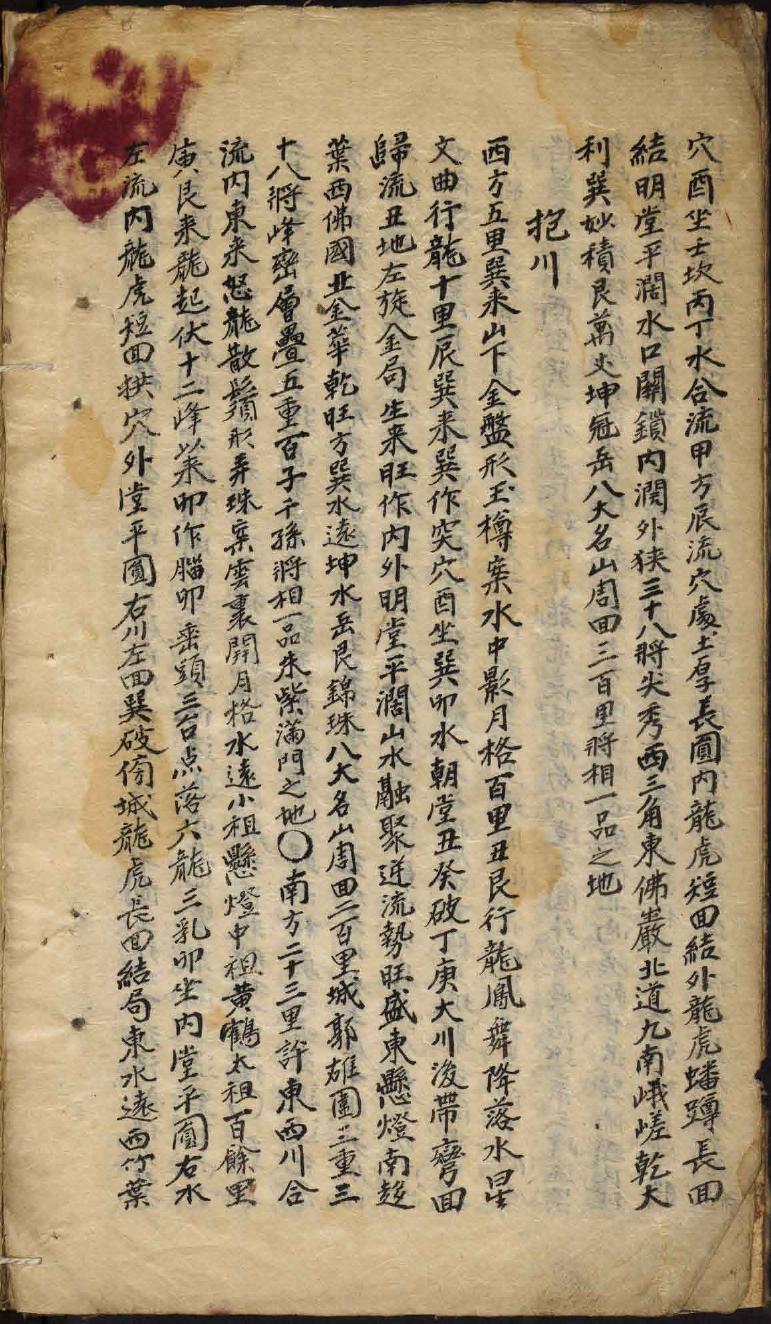 穴酉坐壬坎丙丁水合流甲方辰流穴處土厚長圓内龍虎短回結外龍虎蟠蹲長回
結明堂平濶水口關鎖内濶外狹三十八將尖秀西三角東佛巖北道九南峨嵯乾大
利巽妙積艮萬丈坤冠岳八大名山周回三百里將相一品之地
抱川
西方五里巽来山下金盤形玉樽案水中影月格百里丑艮行龍鳳舞降落水星
文曲行龍十里辰巽来巽作突穴酉坐巽卯水朝堂丑癸破丁庚大川後帶彎回
歸流丑地左旋金局生来旺作内外明堂平濶山水融聚逆流勢旺盛東懸燈南
葉西佛國丑金華乾旺方巽水遠坤水岳艮錦珠八大名山周回二百里城郭雄圍三重三
十八將峰巒層疊五重百子千孫將相一品朱紫滿門之地〇南方二十三里許東西川合
流内東来怒龍散鬚形弄珠案雲裏開月格水遠小祖懸燈中祖黄鶴太祖百餘里
庚艮来龍起伏十二峰巽卯作腦卯垂頭三台点落六龍三乳卯坐内堂平圓右水
左流内龍虎短回拱穴外堂平圓右川左回巽破傍城龍虎長回結局東水遠西竹葉